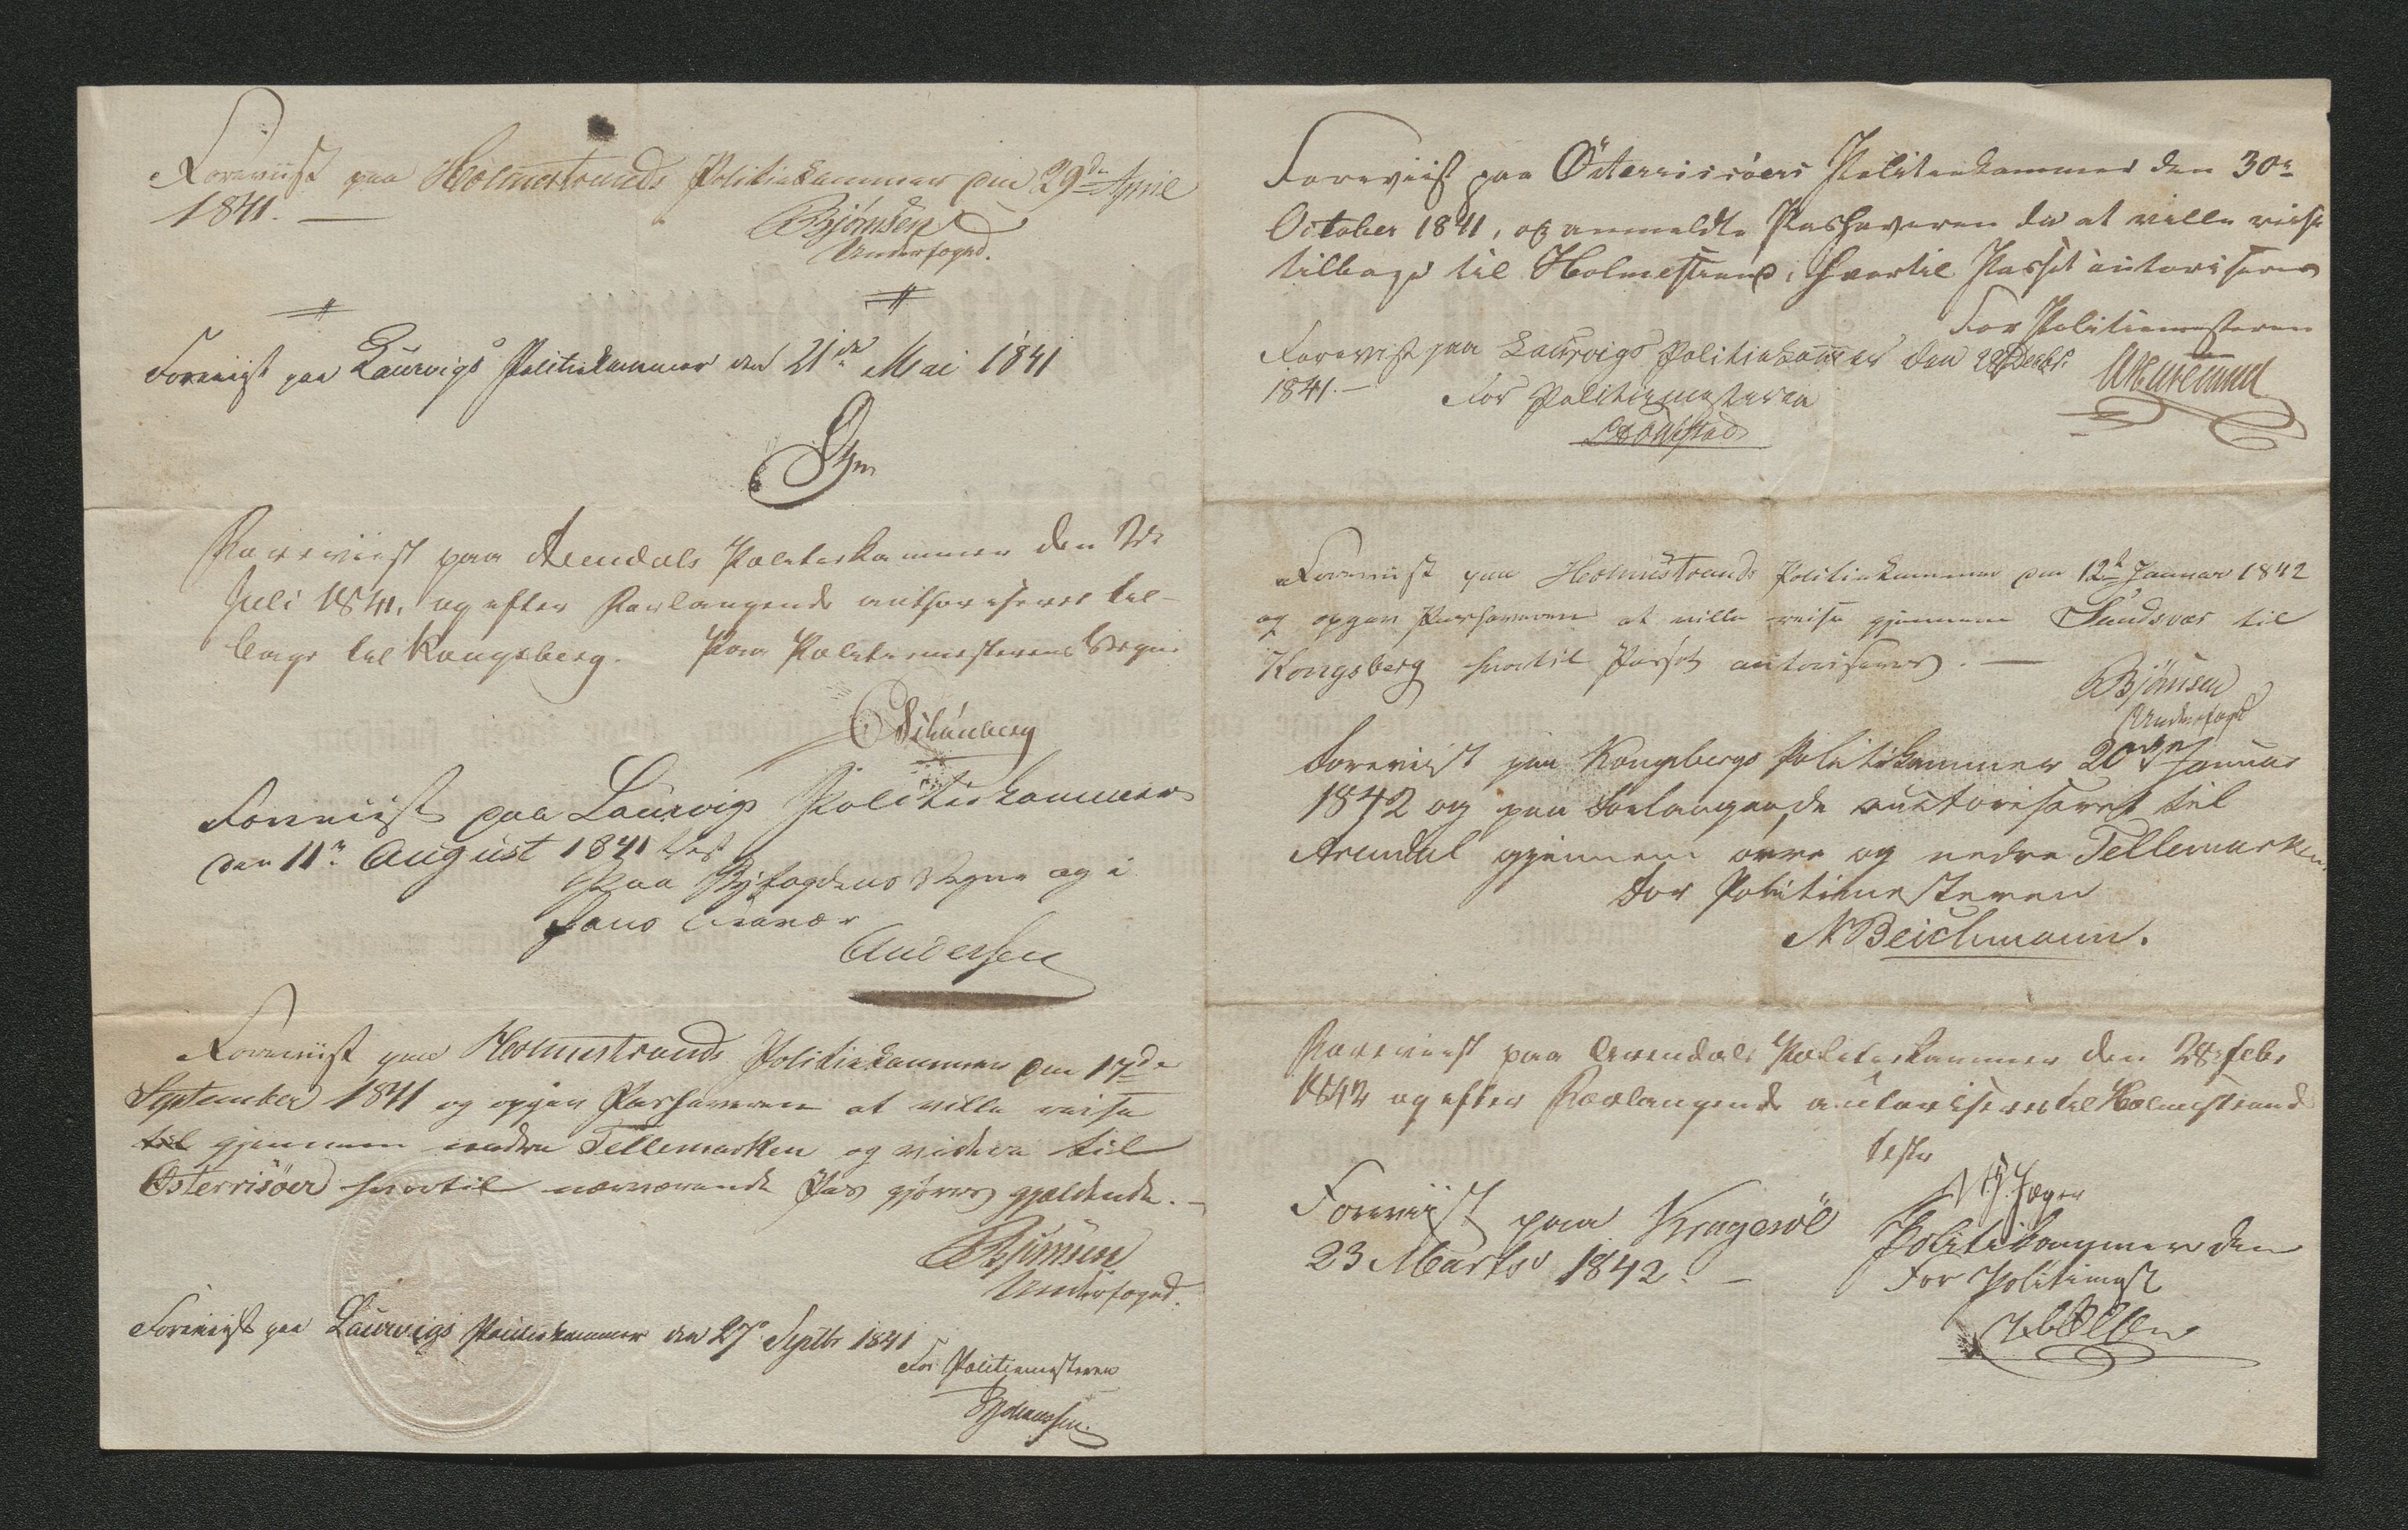 Foreviist paa Holmestrands Politiekammer den 29de April
1841. —
Bjørnsen
Underfoged.
Foreviist paa Laurvigs Politiekammer den 21de Mai 1841
Foreviist paa Arendals Politiekammer den
Juli 1841, og efter Forlangende authoriseres til-
bage til Kongsberg. Paa Politiemesterens Vegne
Schönberg
Foreviist paa Laurvigs Politiekammer
den 11te August 1841
Paa Byfogdens Vegne og i
hans Fravær
Andersen
Foreviist paa Holmestrands Politiekammer den 17de
September 1841 og opgav Pashaveren at ville reise
til gjennem nedre Tellemarken og videre til
Østerrisöer hvortil nærværende Pas gjøres gjældende. —
Bjørnsen
Underfoged.
Foreviist paa Laurvigs Politiekammer den 27de Septbr 1841
For Politiemesteren
Foreviist paa Österrisöers Politiekammer den 30te
October 1841, og anmeldte Pashaveren da at ville reise
tilbage til Holmestrand, hvortil Passet autoriseres
For Politiemesteren
Foreviist paa Laurvigs Politiekammer den Decbr.
1841. —
For Politiemesteren
Foreviist paa Holmestrands Politiekammer den 12te Januar 1842
og opgav Pashaveren at ville reise gjennem Sandsvær til
Kongsberg hvortil Passet autoriseres. —
Bjørnsen
Underfoged
Foreviist paa Kongsbergs Politikammer 20de Januar
1842 og paa Forlangende auctoriseret til
Arendal gjennem øvre og nedre Tellemarken,
For Politimesteren
N Beichmann.
Foreviist paa Arendals Politiekammer den 28 Febr
1842 og efter Forlangende autoriseres til Holmestrand
Foreviist paa Kragerøe Politikammer den
23 Marts 1842. —
For Politimest